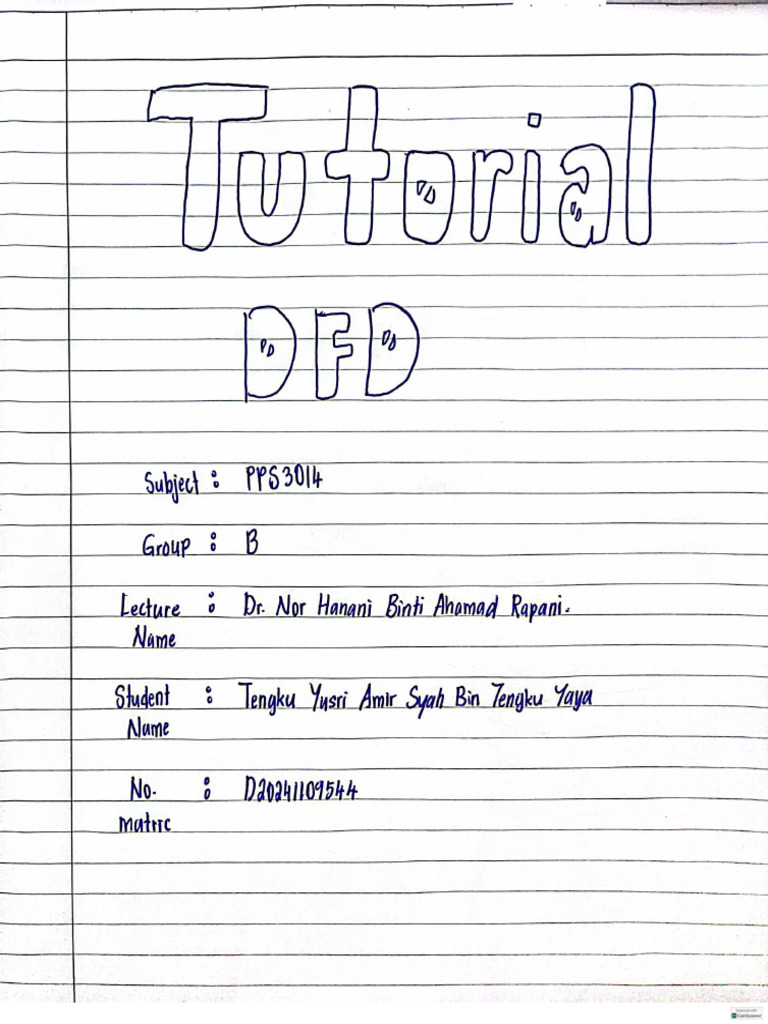 Tutorial
DFD
Subject : PPS3014
Group : B
Lecture : Dr. Nor Hanani Binti Ahamad Rapani.
Name
Student : Tengku Yusri Amir Syah Bin Tengku Yaya
Name
No. : D20241109544
matric
Scanned with
CamScanner